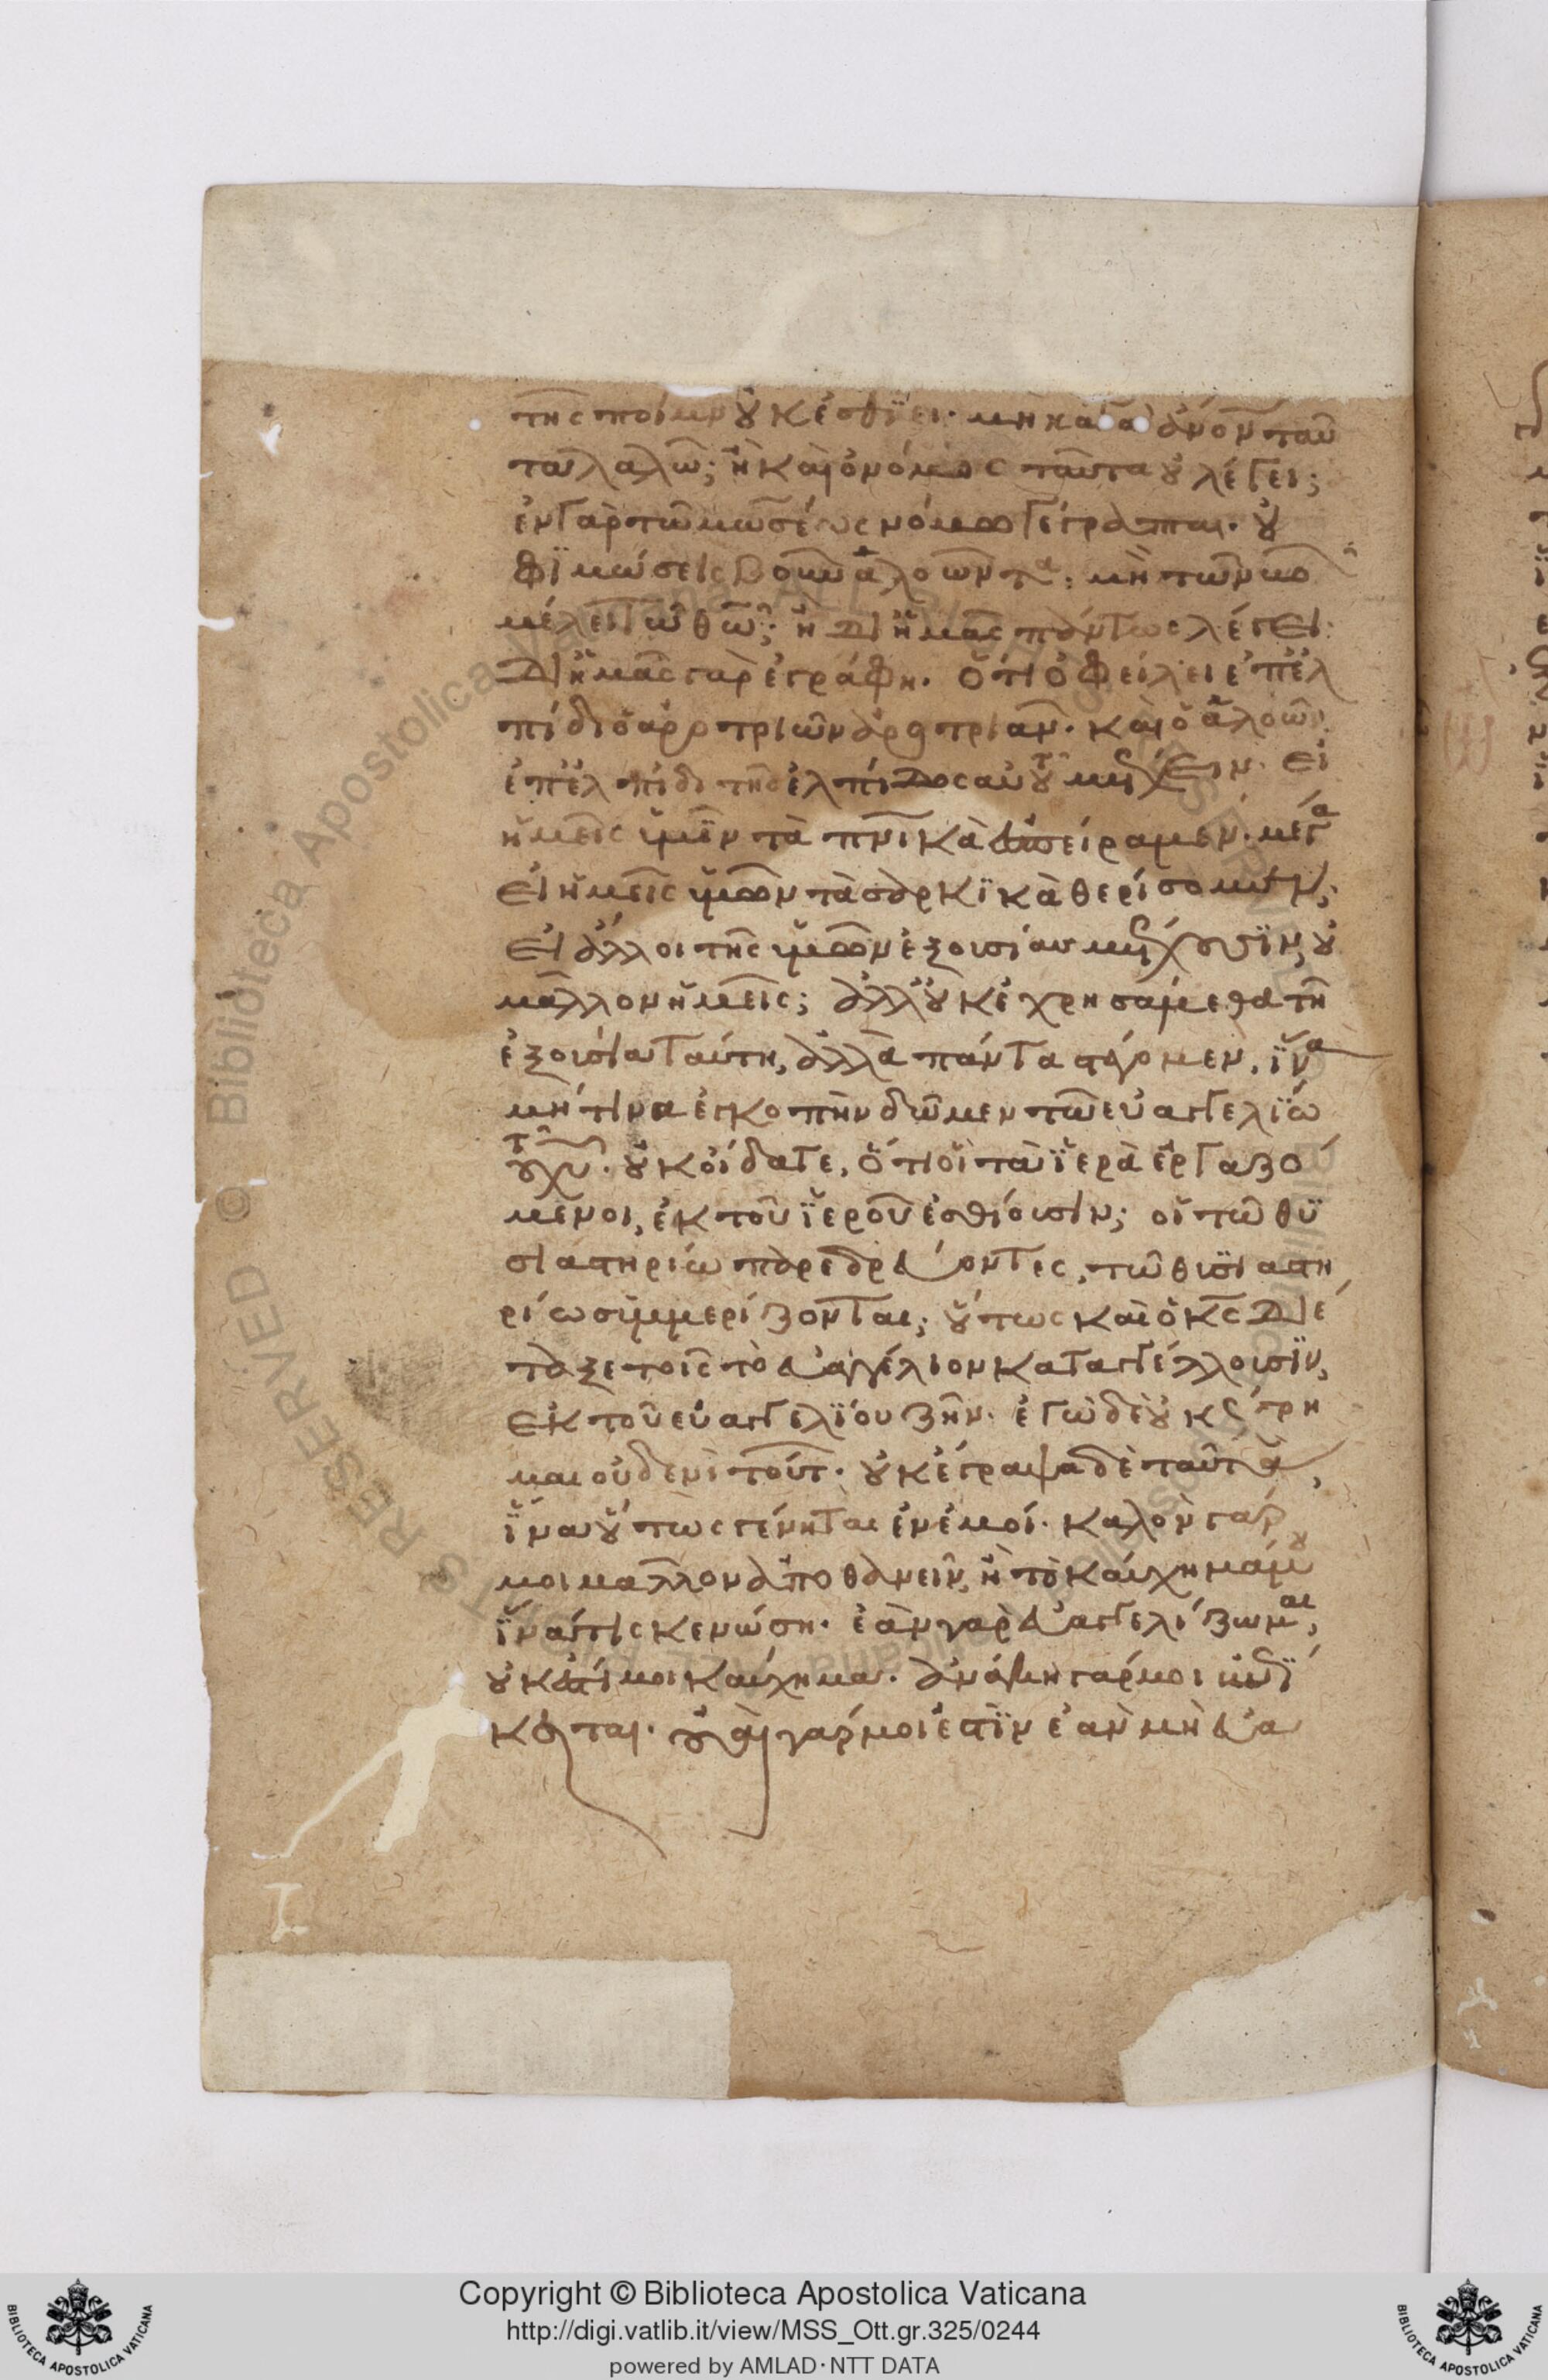 τῆς ποίμν οὐκ ἐσθΐει· μὴ κατὰ ἄνον ταῦ
τα λαλῶ; ἢ καὶ ὁ νόμος ταῦτα οὐ λέγει;
ἐν γὰρ τῶ μωσέως νόμω γέγραπται· οὐ
φϊμώσεις βοῦν ἀλοῶντα· μὴ τῶν βοῶν
μέλει τῶ θῶ; ἢ δι ἡμᾶς πάντως λέγει·
δι ἡμᾶς γὰρ ἐγράφη· ὅτι ὀφείλει ἐπ ἐλ
πίδι ὁ ἀροτριῶν ἀροτριᾶν· καὶ ὁ ἀλοῶν
ἐπ ἐλπίδι τῆς ἐλπίδος αὐτοῦ μετέχειν· εἰ
ἡμεῖς ὑμῖν τὰ πνϊκὰ ἐσπείραμεν· μέγα
εἰ ἡμεῖς ὑμῶν τὰ σαρκϊκὰ θερίσομεν;
εἰ ἄλλοι τῆς ὑμῶν ἐξουσίας μετέχουσϊν, οὐ
μᾶλλον ἡμεῖς; ἀλλ οὐκ ἐχρησάμεθα τῆ
ἐξουσία ταύτη, ἀλλὰ πάντα στέγομεν, ἵνα
μή τινα ἐγκοπὴν δῶμεν τῶ εὐαγγελϊω
τοῦ χυ· οὐκ οἴδατε, ὅτι οἱ τὰ ϊερὰ ἐργαζό
μενοι, ἐκ τοῦ ϊεροῦ ἐσθίουσιν; οἱ τῶ θυ
σιαστηρίω παρεδρεύοντες, τῶ θυσιαστη
ρίω συμμερίζονται; οὕτως καὶ ὁ κς διέ
ταξε τοῖς τὸ εὐαγγέλιον καταγγέλλουσϊν,
ἐκ τοῦ εὐαγγελϊου ζῆν· ἐγὼ δὲ οὐ κέχρη
μαι οὐδενὶ τούτ· οὐκ ἔγραψα δὲ ταῦτα,
ἵνα οὕτως γένηται ἐν ἐμοί· καλὸν γάρ
μοι μᾶλλον ἀποθανεῖν, ἢ τὸ καύχημά μου
ἵνα τις κενώση· ἐὰν γὰρ εὐαγγελίζωμαι,
οὐκ ἔστί μοι καύχημα· ἀνάγκη γάρ μοι ἐπϊ
κειται· οὐαὶ γάρ μοι ἐστϊν ἐὰν μὴ εὐα
Copyright © Biblioteca Apostolica Vaticana
http://digi.vatlib.it/view/MSS_Ott.gr.325/0244
powered by AMLAD·NTT DATA
BIBLIOTECA APOSTOLICA VATICANA
BIBLIOTECA APOSTOLICA VATICANA